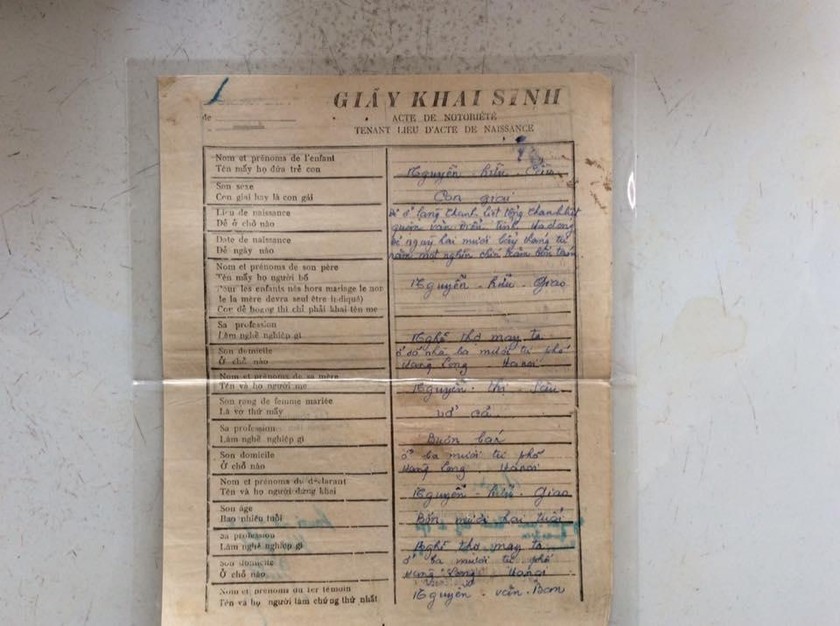 de
GIẤY KHAI SINH
ACTE DE NOTORIÉTÉ
TENANT LIEU D'ACTE DE NAISSANCE
Nom et prénoms de l'enfant
Tên mấy họ đứa trẻ con
Nguyễn hữu
Son sexe
Con giai hay là con gái
Con giai
Lieu de naissance
Đẻ ở chỗ nào
Date de naissance
Đẻ ngày nào
hai mươi bảy tháng tư
năm một nghìn chín trăm bốn tám
Nom et prénoms de son père
Tên mấy họ người bố
Pour les enfants nés hors mariage le nom
de la mère devra seul être indiqué)
Con đẻ hoang thì chỉ phải khai tên mẹ
Nguyễn - hữu - Giao
Sa profession
Làm nghề nghiệp gì
Nghề thợ may ta
Son domicile
Ở chỗ nào
ở số nhà ba mươi tư phố
Hanoi
Nom et prénoms de sa mère
Tên và họ người mẹ
Nguyễn thị
Son rang de femme mariée
Là vợ thứ mấy
vợ cả
Sa profession
Làm nghề nghiệp gì
Buôn bán
Son domicile
Ở chỗ nào
ở ba mươi tư phố
Hanoi
Nom et prénoms du déclarant
Tên và họ người đứng khai
Nguyễn - hữu - Giao
Son âge
Bao nhiêu tuổi
Bốn mươi hai tuổi
Sa profession
Làm nghề nghiệp gì
Nghề thợ may ta
Son domicile
Ở chỗ nào
ở ba mươi tư phố
Hanoi
Nom et prénoms du 1er témoin
Tên và họ người làm chứng thứ nhất
Nguyễn - văn